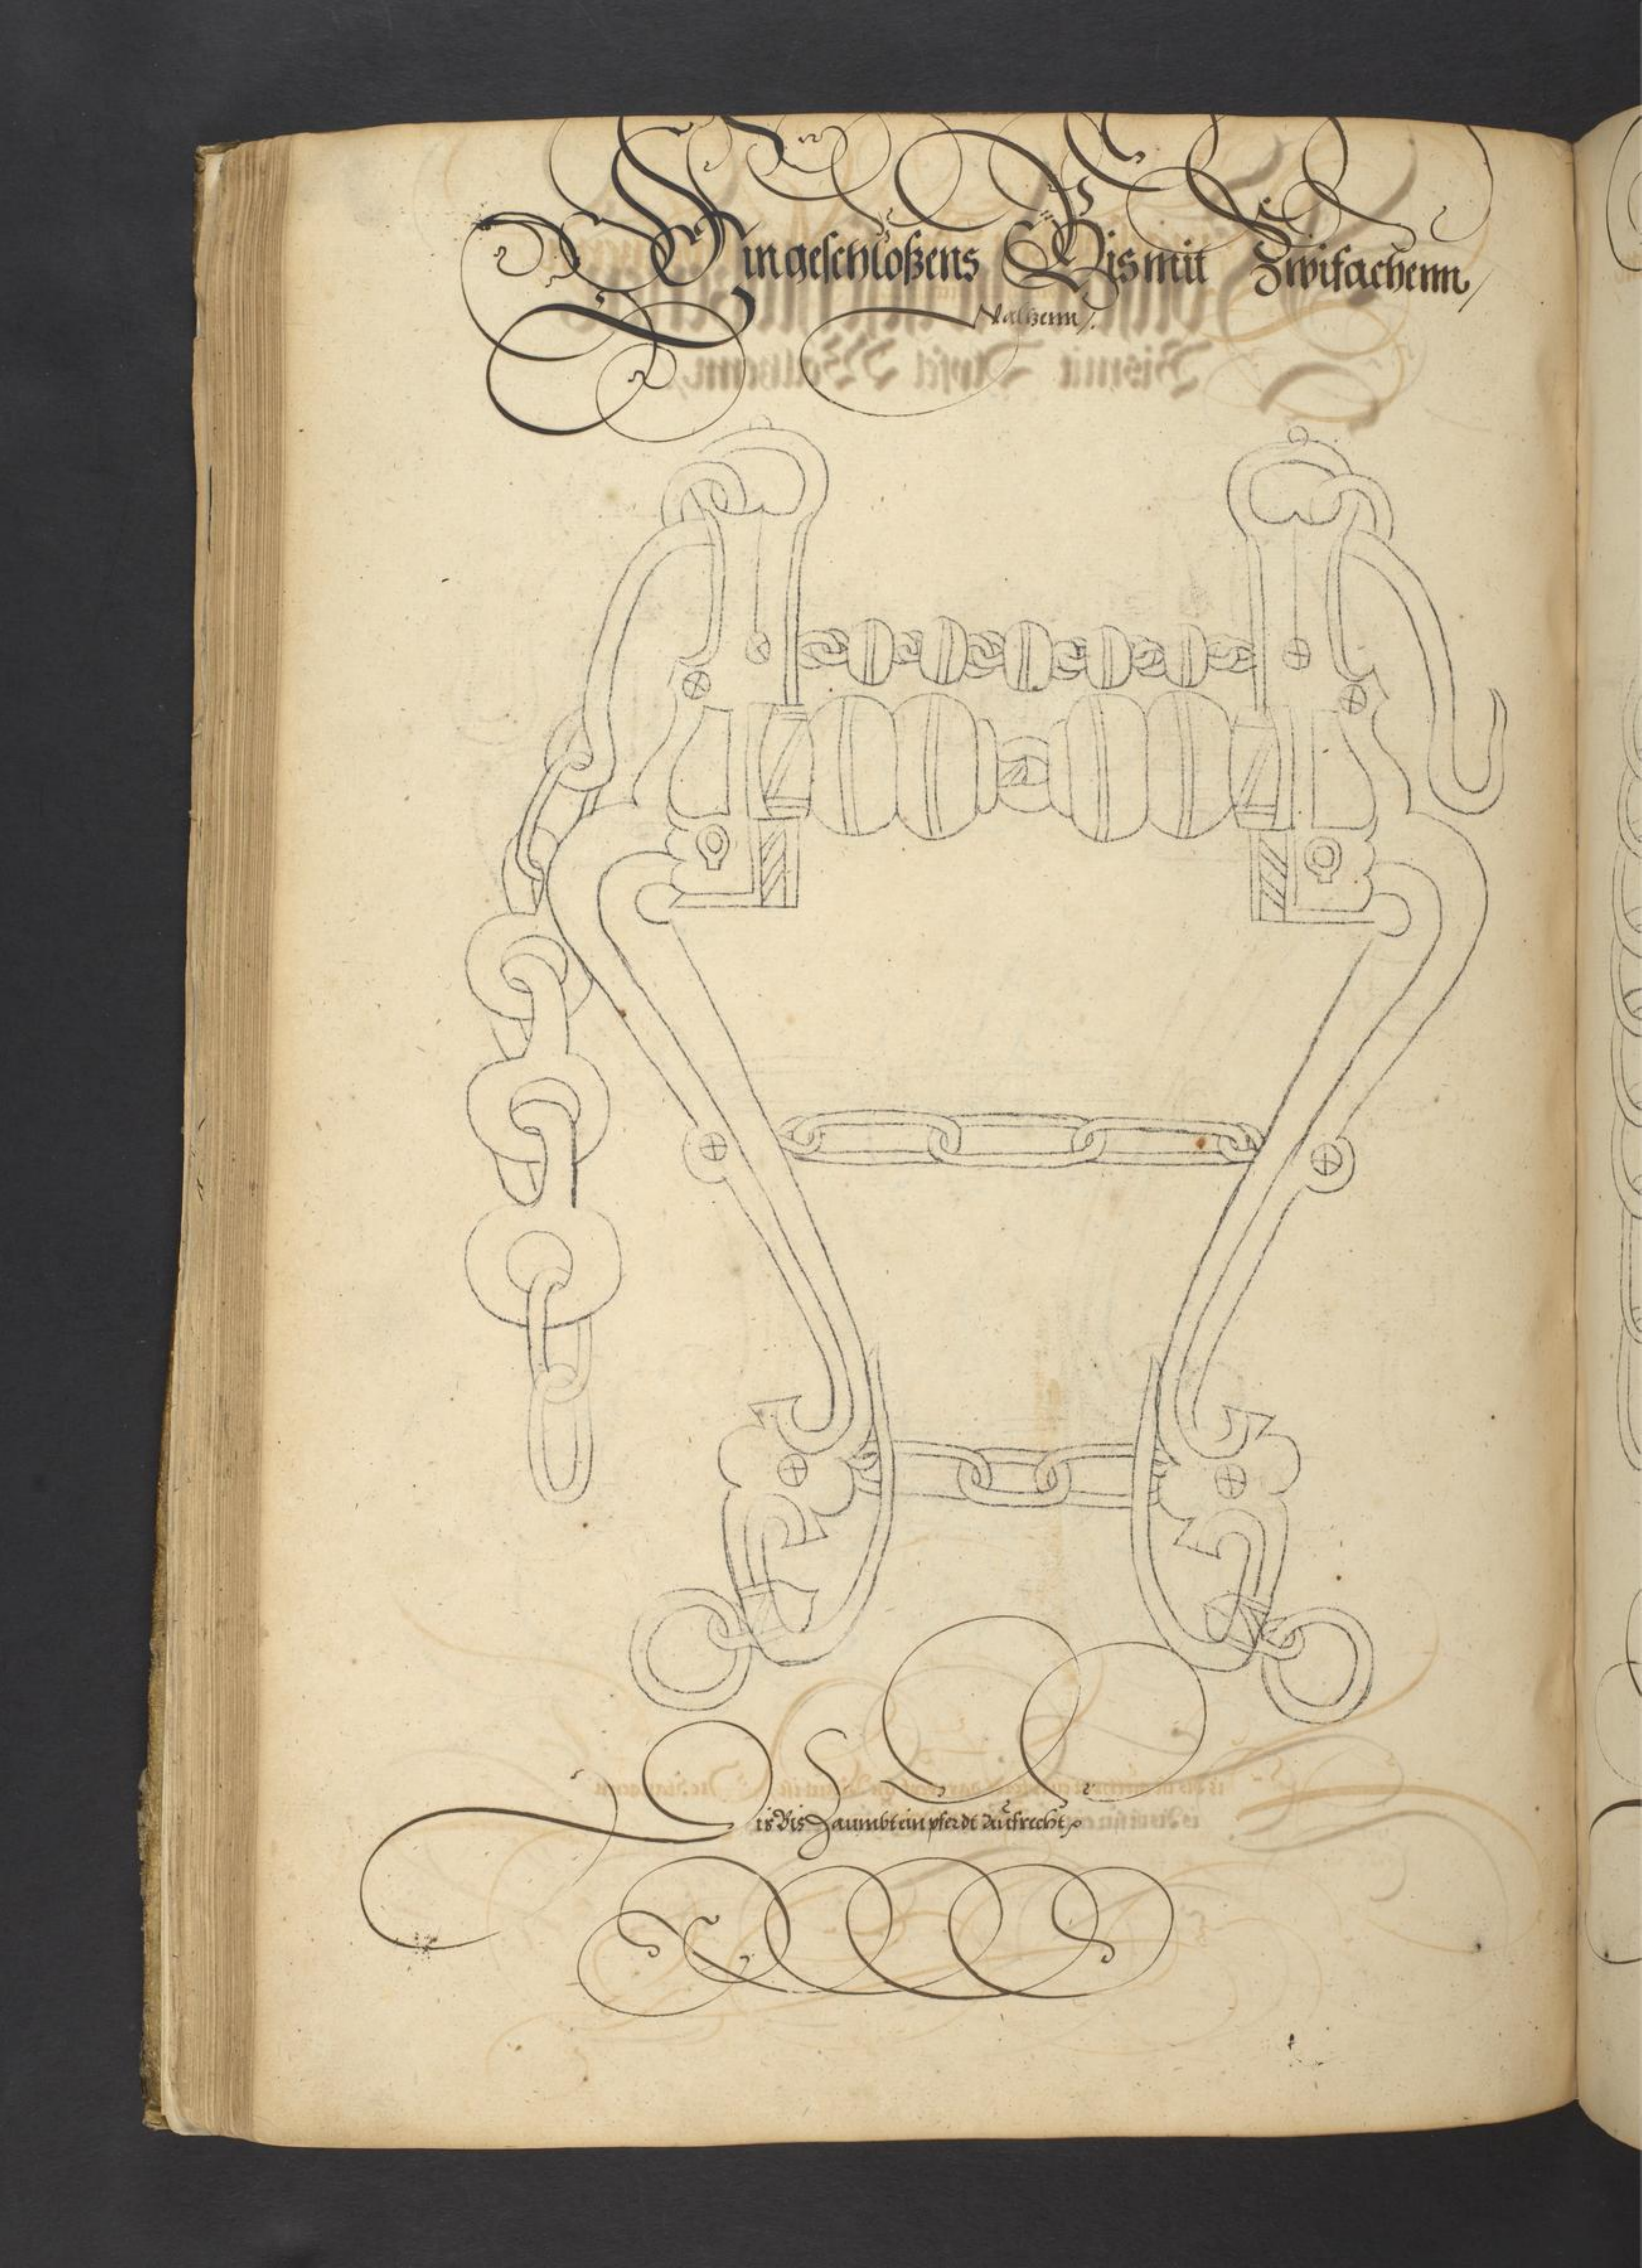 Ein geschloßens Bis mit Zwifachenn
Walzenn
Dis Bis Zaumbt ein pferdt Aufrecht